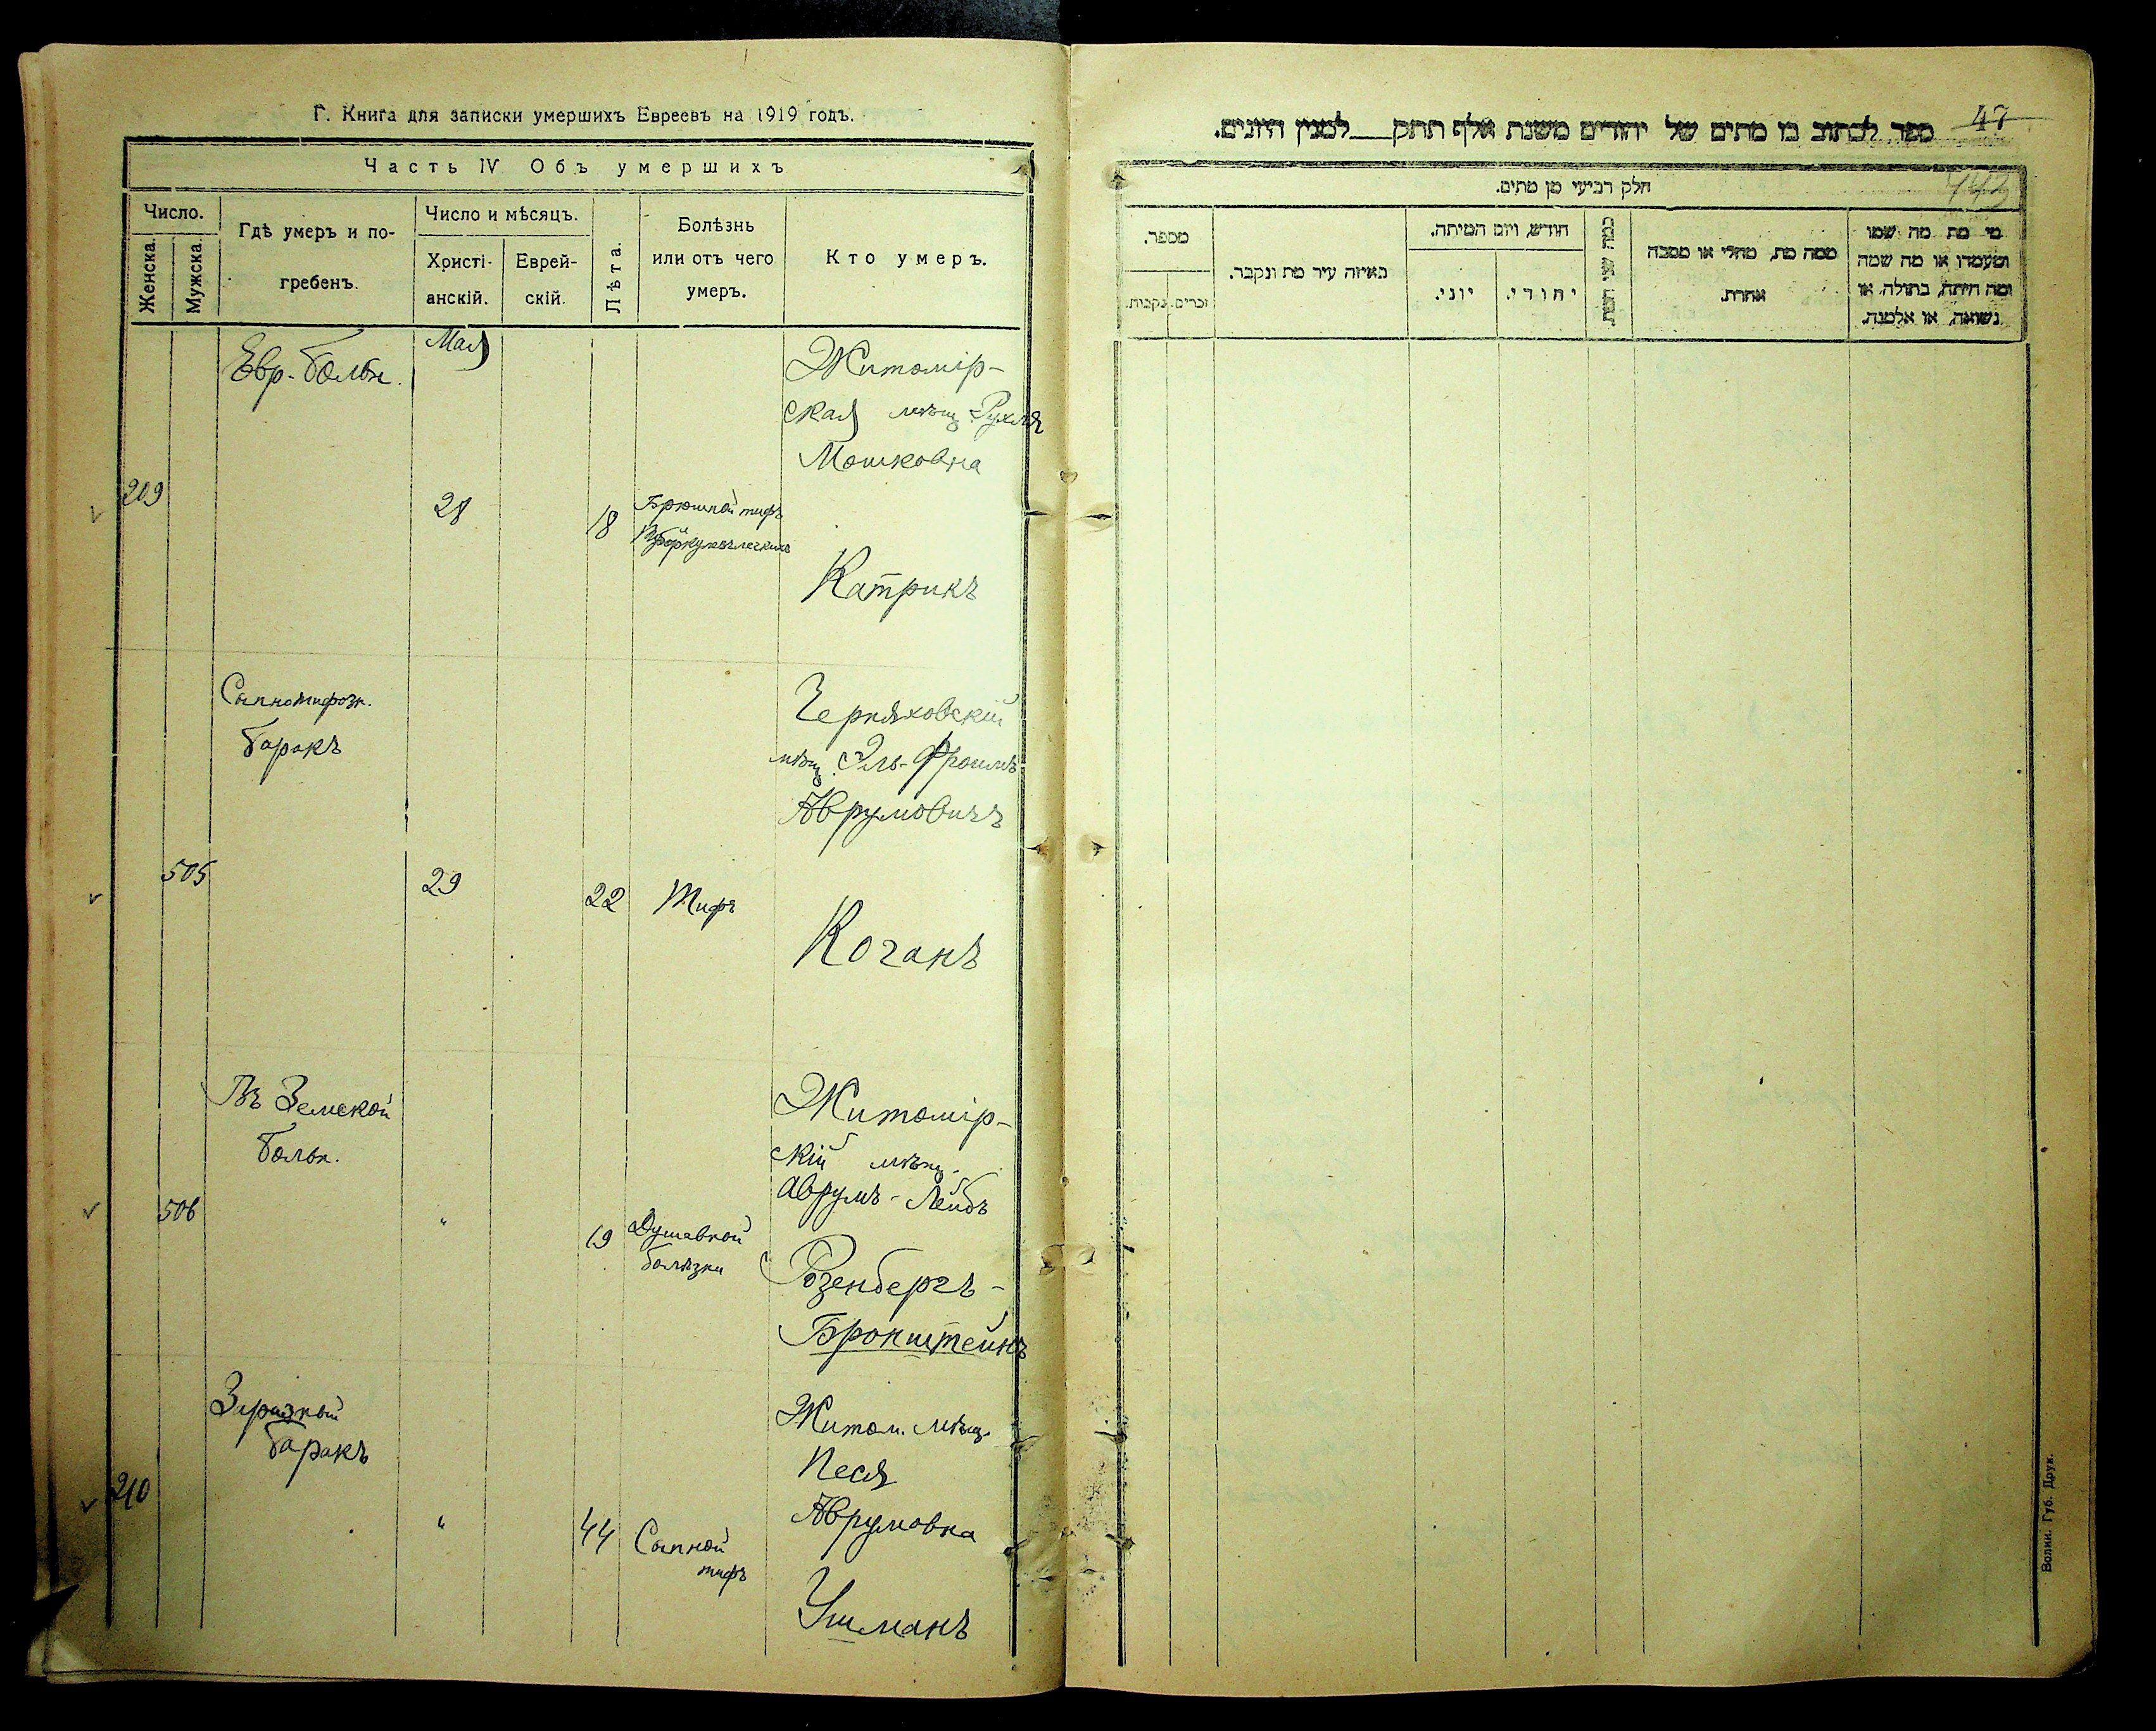 Г. Книга для записки умершихъ Евреевъ на 1919 годъ.
Часть IV Объ умершихъ
Число.
Женска.
Мужска.
Гдѣ умеръ и по-
гребенъ.
Число и мѣсяцъ.
Христі-
анскій.
Еврей-
скій.
Лѣта.
Болѣзнь
или отъ чего
умеръ.
Кто умеръ.
Евр. больн.
Мая
Житомір-
ская мѣщ. Рухля
Мошковна
209
28
18
Брюшной тифъ
туберкулезъ легкихъ
Катрикъ
Сыпнотифозн.
баракъ
Черняховскій
мѣщ. Эль-Фроимъ
Аврумовичъ
505
29
22
Тифъ
Коганъ
Въ Земской
больн.
Житомір-
скій мѣщ.
Аврумъ-Лейбъ
506
"
19
Душевной
болѣзни
Розенбергъ-
Бронштейнъ
Заразный
баракъ
Житом. мѣщ.
Песя
Аврумовна
210
"
44
Сыпной
тифъ
Ушманъ
47
ספר לכתוב בו מתים של יהודים משנת אלף תתק___למנין היונים.
443
חלק רביעי מן מתים.
מספר.
זכרים.
נקבות.
באיזה עיר מת ונקבר.
חודש, ויום המיתה.
יוני.
יהודי.
כמה שני המת.
ממה מת, מחלי או מסבה
אחרת.
מי מת מה שמו
ומעמדו או מה שמה
ומה היתה, בתולה, או
נשואה, או אלמנה.
Волин. Губ. Друк.